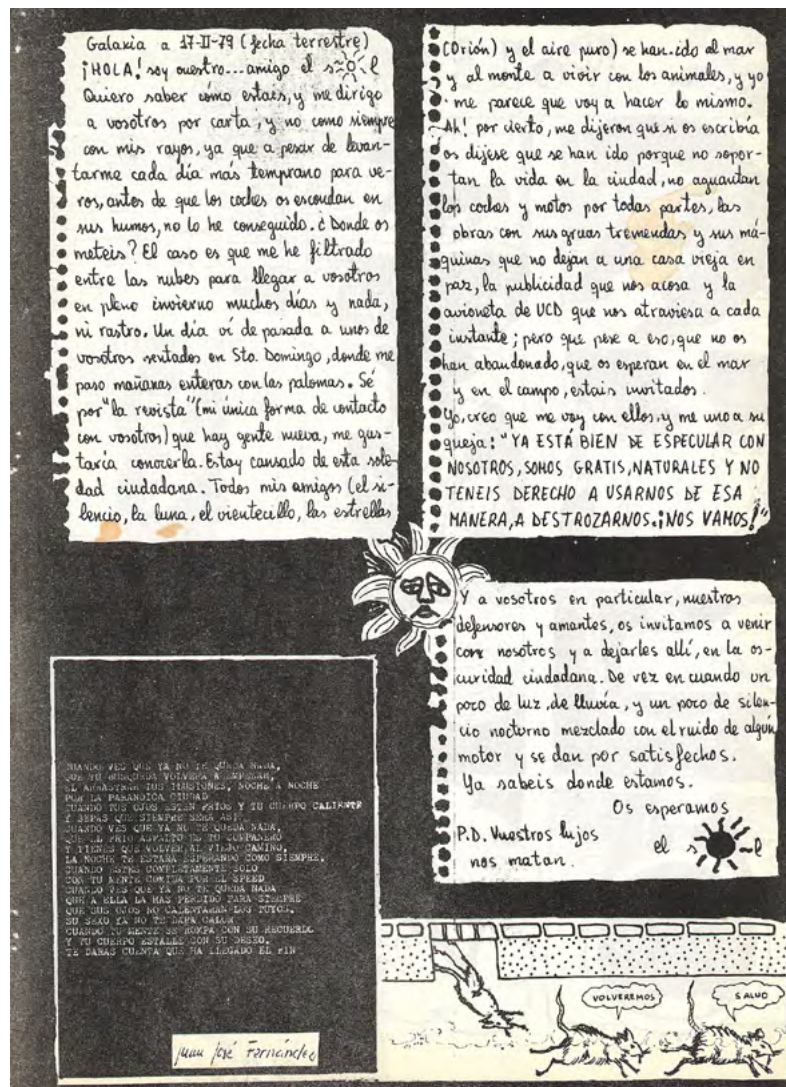 Galaxia a 17-II-79 (fecha terrestre)
¡HOLA! soy vuestro...amigo el sol
Quiero saber cómo estais, y me dirigo
a vosotros por carta, y no como siempre
con mis rayos, ya que a pesar de levan-
tarme cada día más temprano para ve-
ros, antes de que los coches os escondan en
sus humos, no lo he conseguido. ¿Donde os
meteis? El caso es que me he filtrado
entre las nubes para llegar a vosotros
en pleno invierno muchos días y nada,
ni rastro. Un día ví de pasada a unos de
vosotros sentados en Sto. Domingo, donde me
paso mañanas enteras con las palomas. Sé
por "la revista" (mi única forma de contacto
con vosotros) que hay gente nueva, me gus-
taría conocerla. Estoy cansado de esta sole-
dad ciudadana. Todos mis amigos (el si-
lencio, la luna, el vientecillo, las estrellas
(Orión) y el aire puro) se han ido al mar
y al monte a vivir con los animales, y yo
me parece que voy a hacer lo mismo.
Ah! por cierto, me dijeron que si os escribía
os dijese que se han ido porque no sopor-
tan la vida en la ciudad, no aguantan
los coches y motos por todas partes, las
obras con sus gruas tremendas y sus má-
quinas que no dejan a una casa vieja en
paz, la publicidad que nos acosa y la
avioneta de UCD que nos atraviesa a cada
instante; pero que pese a eso, que no os
han abandonado, que os esperan en el mar
y en el campo, estais invitados.
Yo, creo que me voy con ellos, y me uno a su
queja: "YA ESTÁ BIEN DE ESPECULAR CON
NOSOTROS, SOMOS GRATIS, NATURALES Y NO
TENEIS DERECHO A USARNOS DE ESA
MANERA, A DESTROZARNOS. ¡NOS VAMOS!"
Y a vosotros en particular, nuestros
defensores y amantes, os invitamos a venir
con nosotros y a dejarles allí, en la os-
curidad ciudadana. De vez en cuando un
poco de luz, de lluvia, y un poco de silen-
cio nocturno mezclado con el ruido de algún
motor y se dan por satisfechos.
Ya sabeis donde estamos.
Os esperamos
el sol
P.D. Vuestros lujos
nos matan.
CUANDO VES QUE YA NO TE QUEDA NADA,
QUE TU BUSQUEDA VOLVERA A EMPEZAR,
EL ARRASTRAR TUS ILUSIONES, NOCHE A NOCHE
POR LA PARANOICA CIUDAD
CUANDO TUS OJOS ESTEN FRIOS Y TU CUERPO CALIENTE
Y SEPAS QUE SIEMPRE SERA ASI.
CUANDO VES QUE YA NO TE QUEDA NADA,
QUE EL FRIO ASFALTO ES TU COMPAÑERO
Y TIENES QUE VOLVER AL VIEJO CAMINO,
LA NOCHE TE ESTARA ESPERANDO COMO SIEMPRE,
CUANDO ESTES COMPLETAMENTE SOLO
CON TU MENTE COMIDA POR EL SPEED
CUANDO VES QUE YA NO TE QUEDA NADA
QUE A ELLA LA HAS PERDIDO PARA SIEMPRE
QUE SUS OJOS NO CALENTARAN LOS TUYOS,
SU SEXO YA NO TE DARA CALOR
CUANDO TU MENTE SE ROMPA CON SU RECUERDO
Y TU CUERPO ESTALLE CON SU DESEO,
TE DARAS CUENTA QUE HA LLEGADO EL FIN
Juan José Fernández
VOLVEREMOS
SALUD